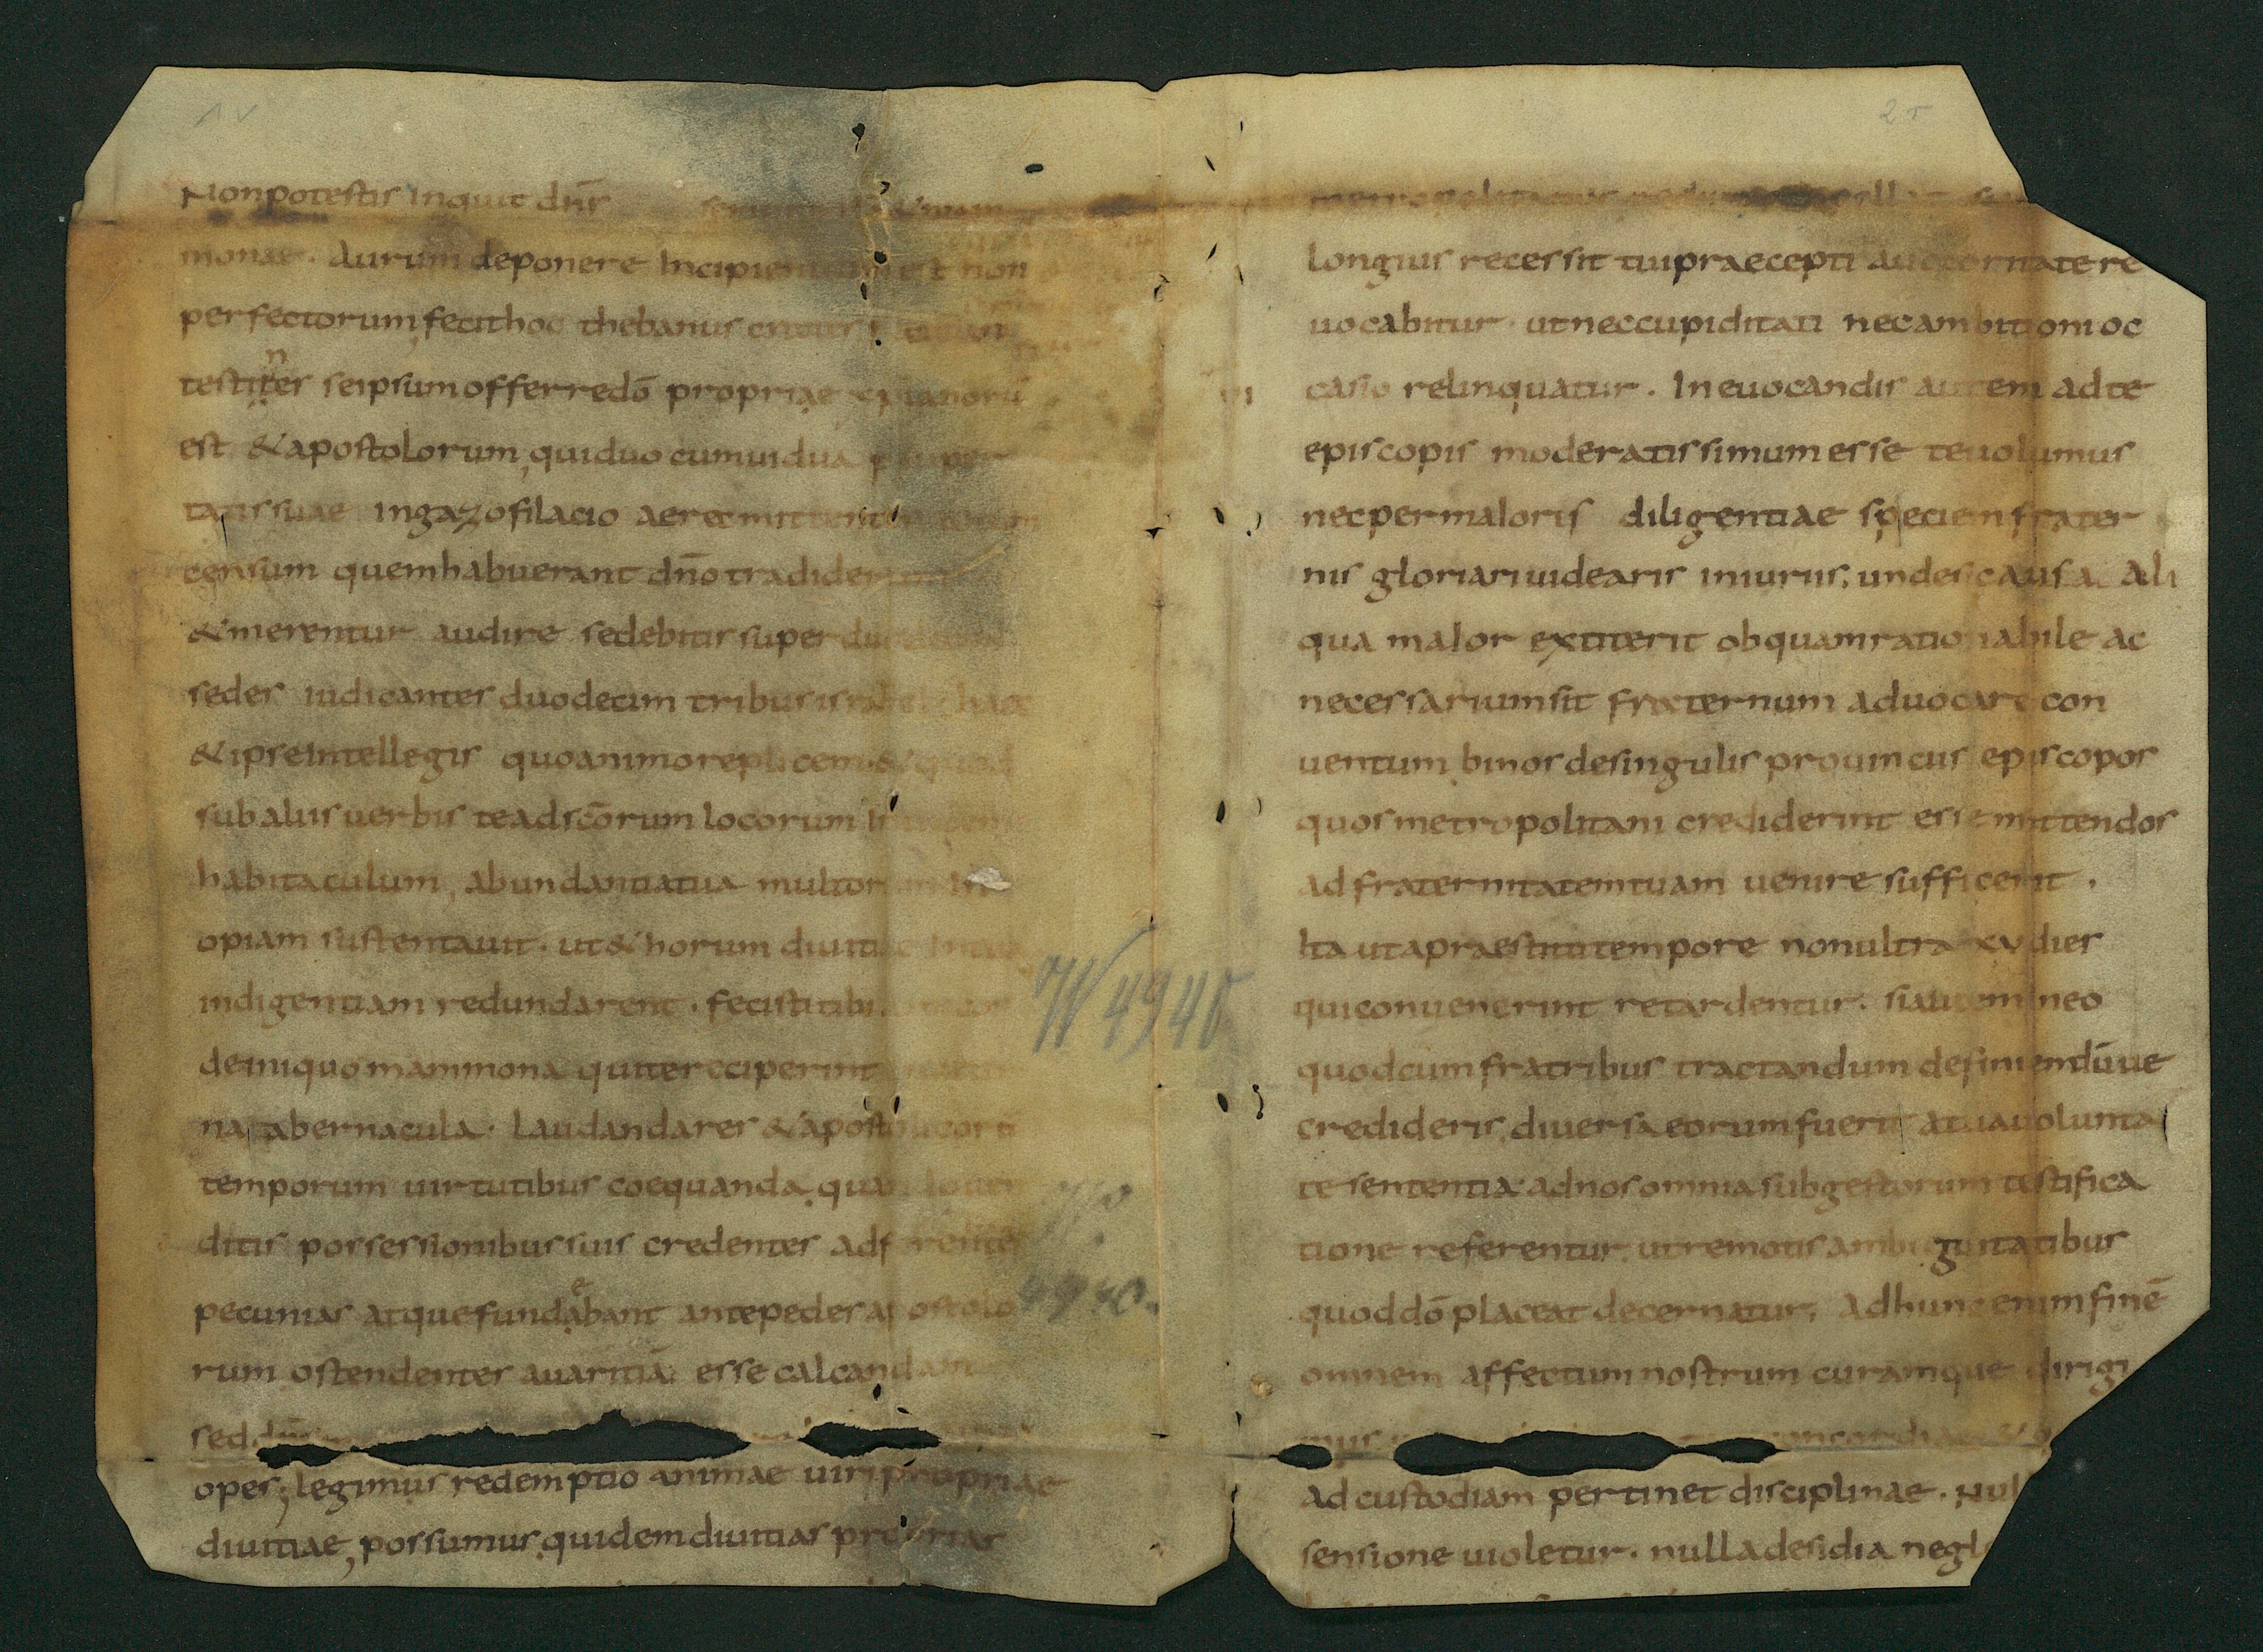 1v
Nonpotestis Inquit dn̄s
monae. Aurum deponere Incipientium est non
perfectorum, fecithoc thebanus crates
testinter seipsumofferredō propriae
est &apostolorum, quiduo cumuidua
tatissuae Ingazofilacio aerecmittentes
censum quemhabuerant dn̄otradiderunt
&merentur audire sedebitissuper
sedes iudicantes duodecim tribusisrahel haec
&ipseIntellegis quoanimoreplicem. &quid
subaliisuerbis teadsc̄orum locorum
habitaculum, abundantiatua multorum In
opiam sustentauit. ut&horum diuitiae
indigentiam redundarent. fecistitibi
deiniquomammona quiterecciperint
natabernacula. Laudandares &apostolicorū
temporum uirtutibus coequanda. quan
ditis possessionibussuis credentes adferentes
pecunias atquefundebant antepedesapostolo
rum ostendentes auaritiā esse calcandam
sed dn̄s
opes; legimus redemptio animae uiripropriae
diuitiae, possumus quidemdiuitias proprias
W 4940
4940.
2r
longius recessit tuipraecepti auctoritatere
uocabitur. utneccupiditati necambitionioc
casio relinquatur. Ineuocandis autem adte
episcopis moderatissimumesse teuolumus
necpermaioris diligentiae speciemfrater
nis gloriariuidearis iniuriis. undesicausa ali
qua maior extiterit obquamrationabile ac
necessariumsit fraternum aduocare con
uentum binosdesingulis prouinciis episcopos
quosmetropolitani crediderint essemittendos
adfraternitatemtuam uenire sufficerit.
Ita utapraestitutitempore nonultra xv dies
quiconuenerint retardentur. siautemineo
quodcumfratribus tractandum definiendūue
credideris, diuersaeorumfuerit atuauolunta
te sententia adnosomnia subgestorum testifica
tione referentur. utremotisambiguitatibus
quoddō placeat decernatur. Adhunc enimfinē
omnem affectumnostrum curamque dirigi
mus concordiae &
ad custodiam pertinet disciplinae. Nul
sensione uioletur. nulladesidia negle